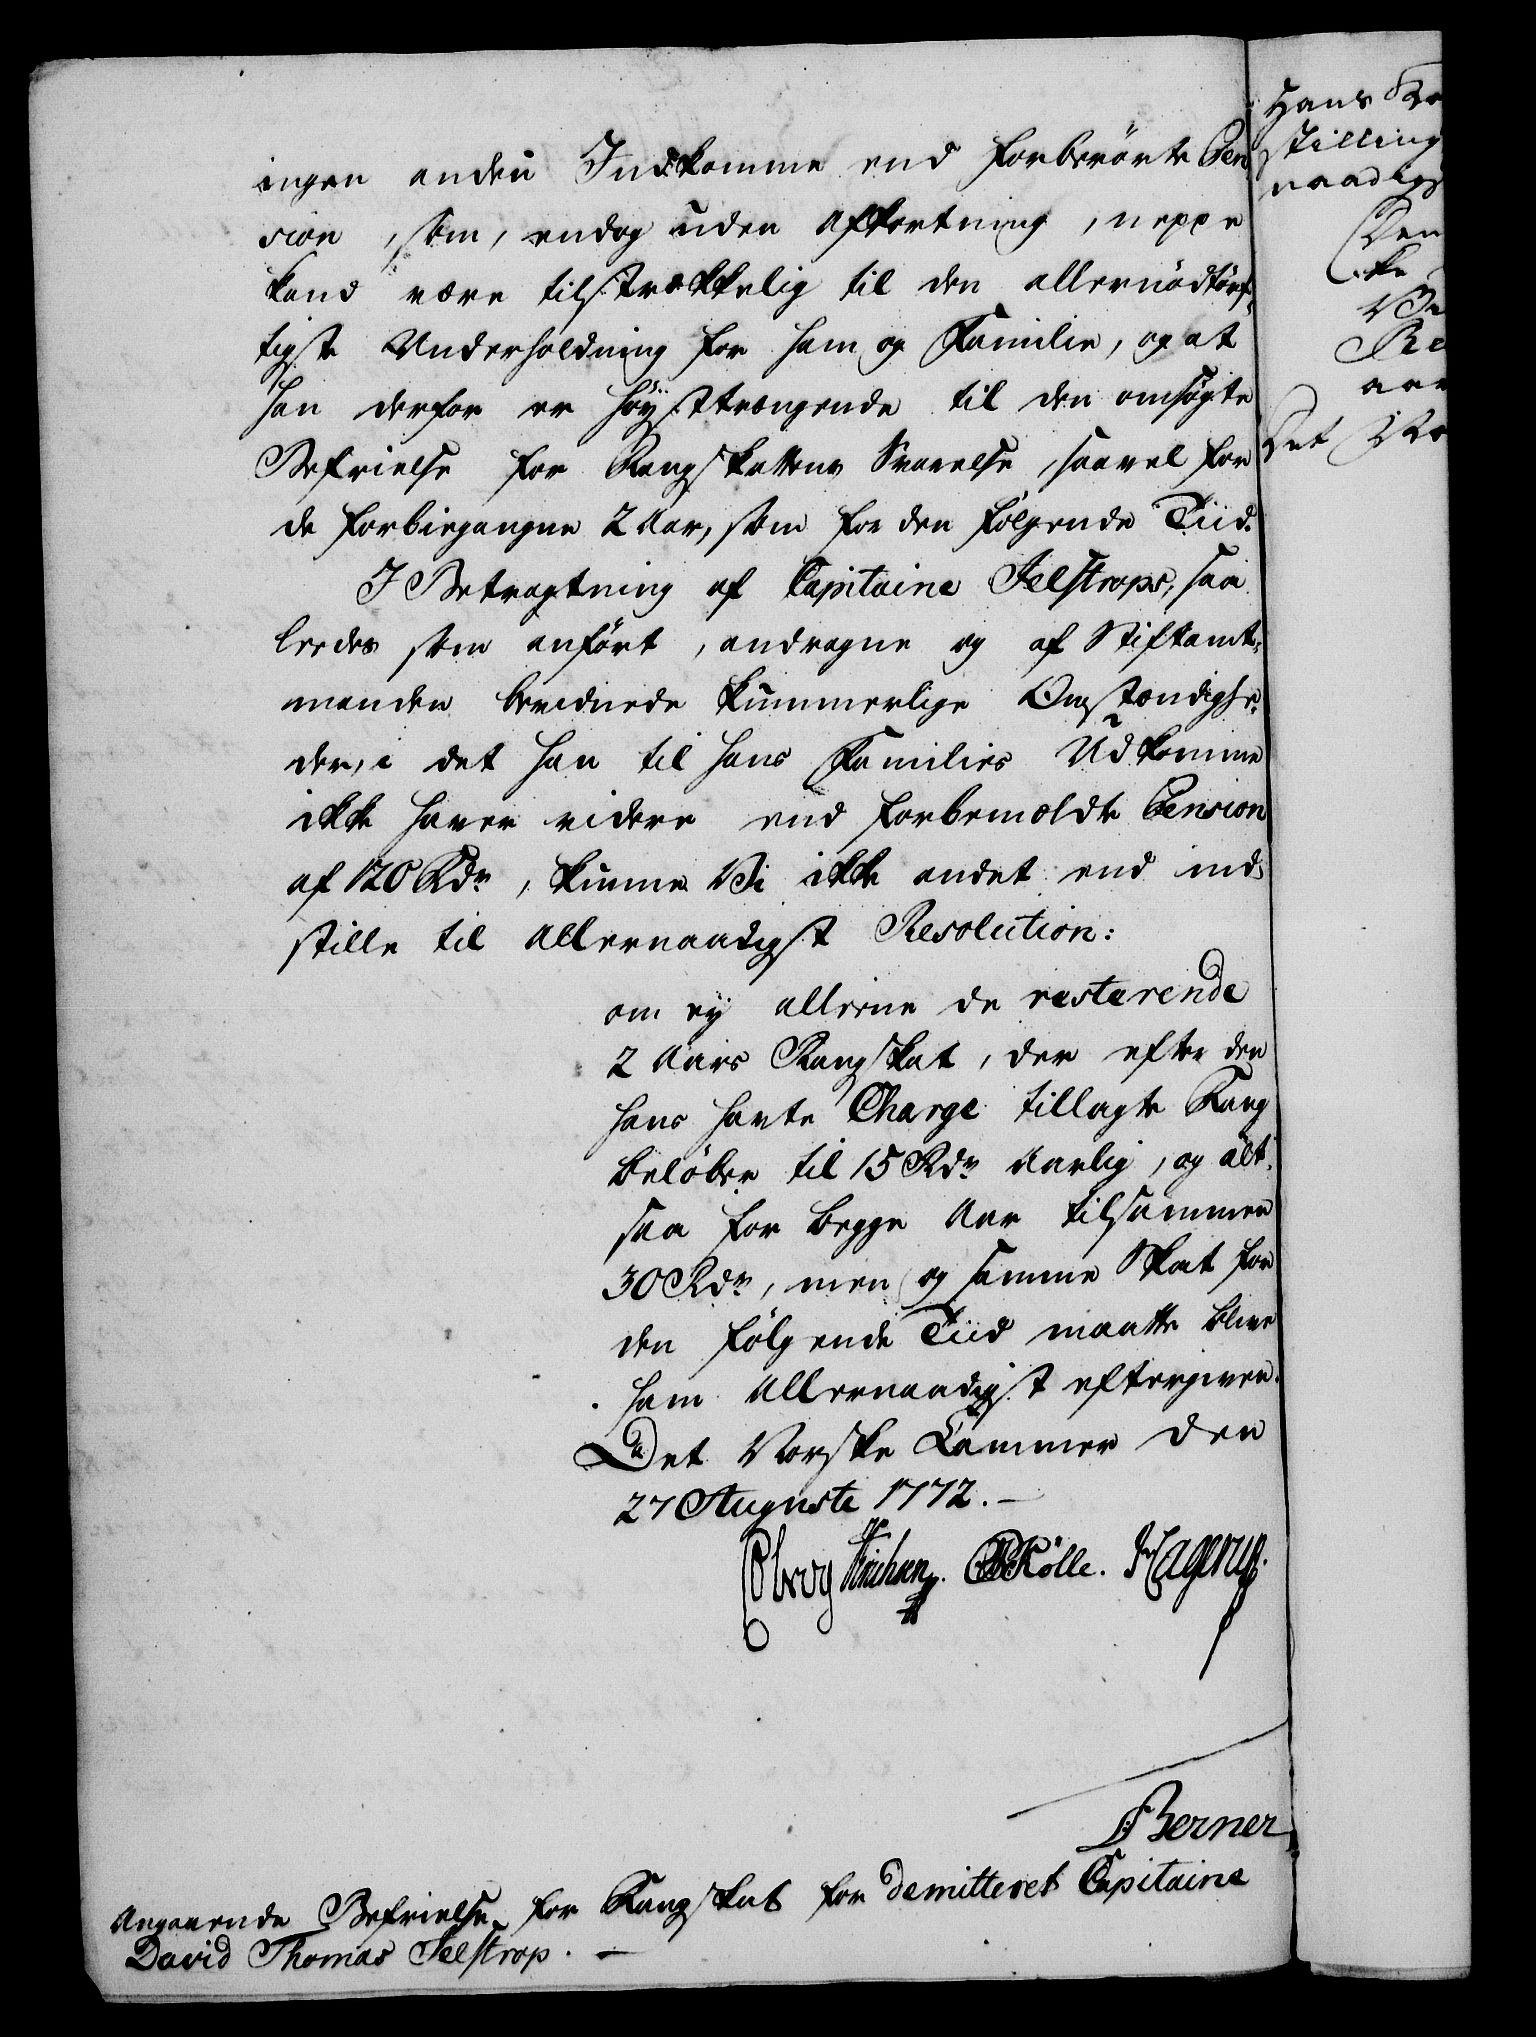 ingen anden Indkomme end forberörte Pen-
sion, som, endog uden Afkortning, neppe
kand være tilstrækkelig til den allernödtörf-
tigste Underholdning for ham og Familie, og at
han derfor er höysttrængende til den omsögte
Befrielse for Rangskattens Svarelse, saavel for
de forbigangne 2 Aar, som for den fölgende Tiid.
I Betragtning af Capitaine Jelstrops, saa-
ledes som anfört, andragne og af Stiftamt-
manden bevidnede kummerlige Omstændighe-
der, i det han til hans Families Udkomme
ikke haver videre end forbemeldte Pension
af 120 Rdr, kunne Vi ikke andet end ind-
stille til Allernaadigst Resolution:
om ey alleene de resterende
2 Aars Rangskat, der efter den
hans havte Charge tillagte Rang
belöber til 15 Rdr Aarlig, og alt-
saa for begge Aar tilsammen
30 Rdr, men og samme Skat for
den fölgende Tiid maatte blive
ham Allernaadigst eftergiven.
Det Norske Cammer den
27 Auguste 1772.
Kölle. Hagerup.
Berner
Angaaende Befrielse for Rangskat for demitteret Capitaine
David Thomas Jelstrop.
Hans
stilling
naadigs
Den
Re
aar
Det